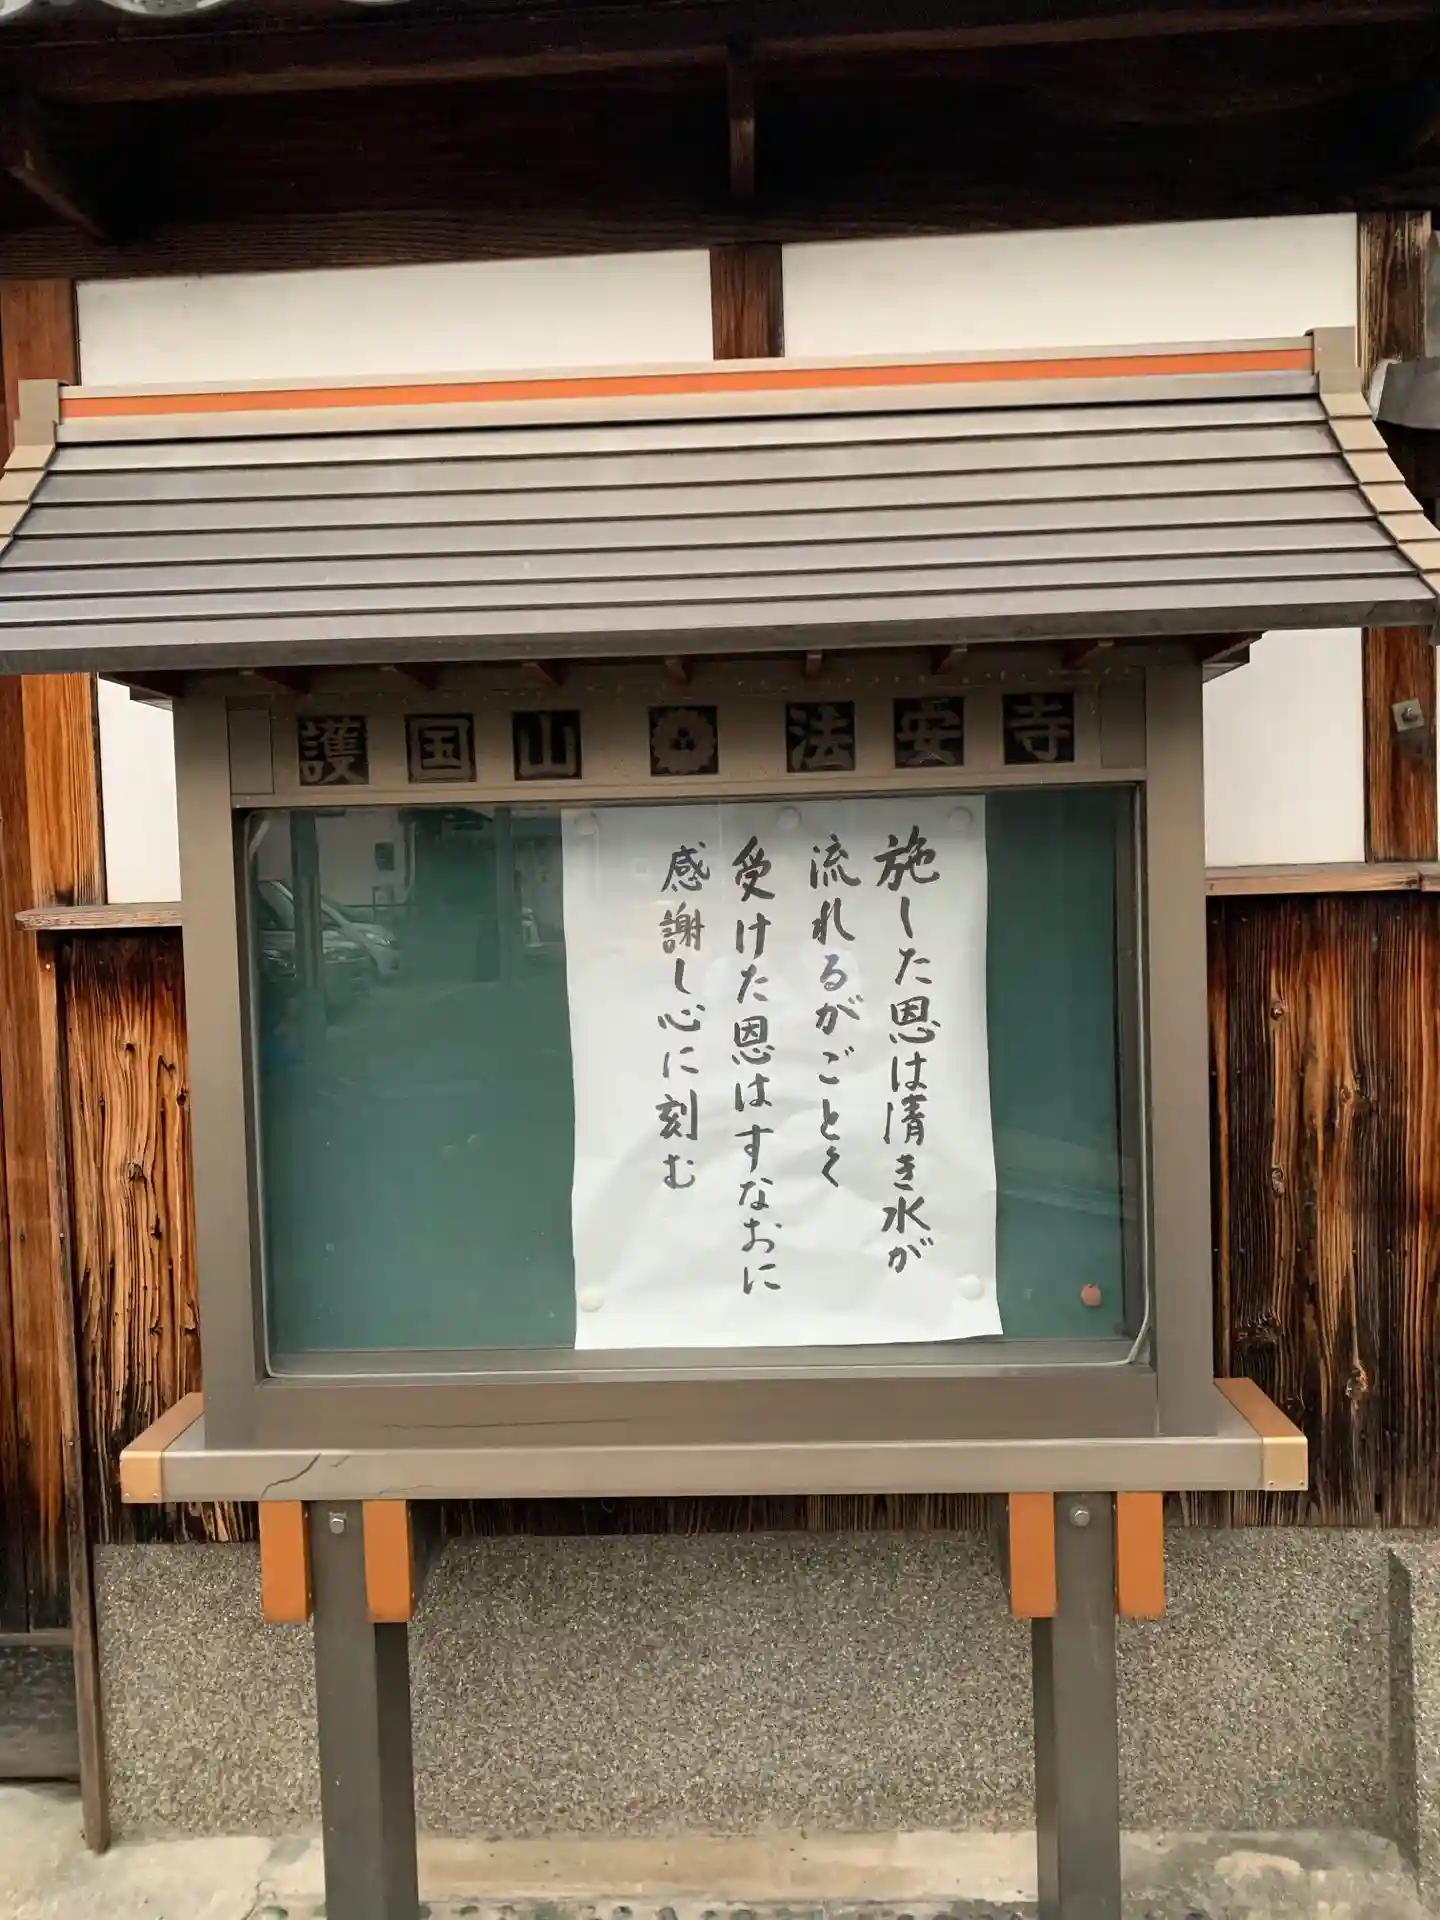 護国山 法安寺
施した恩は清き水が
流れるがごとく
受けた恩はすなおに
感謝し心に刻む